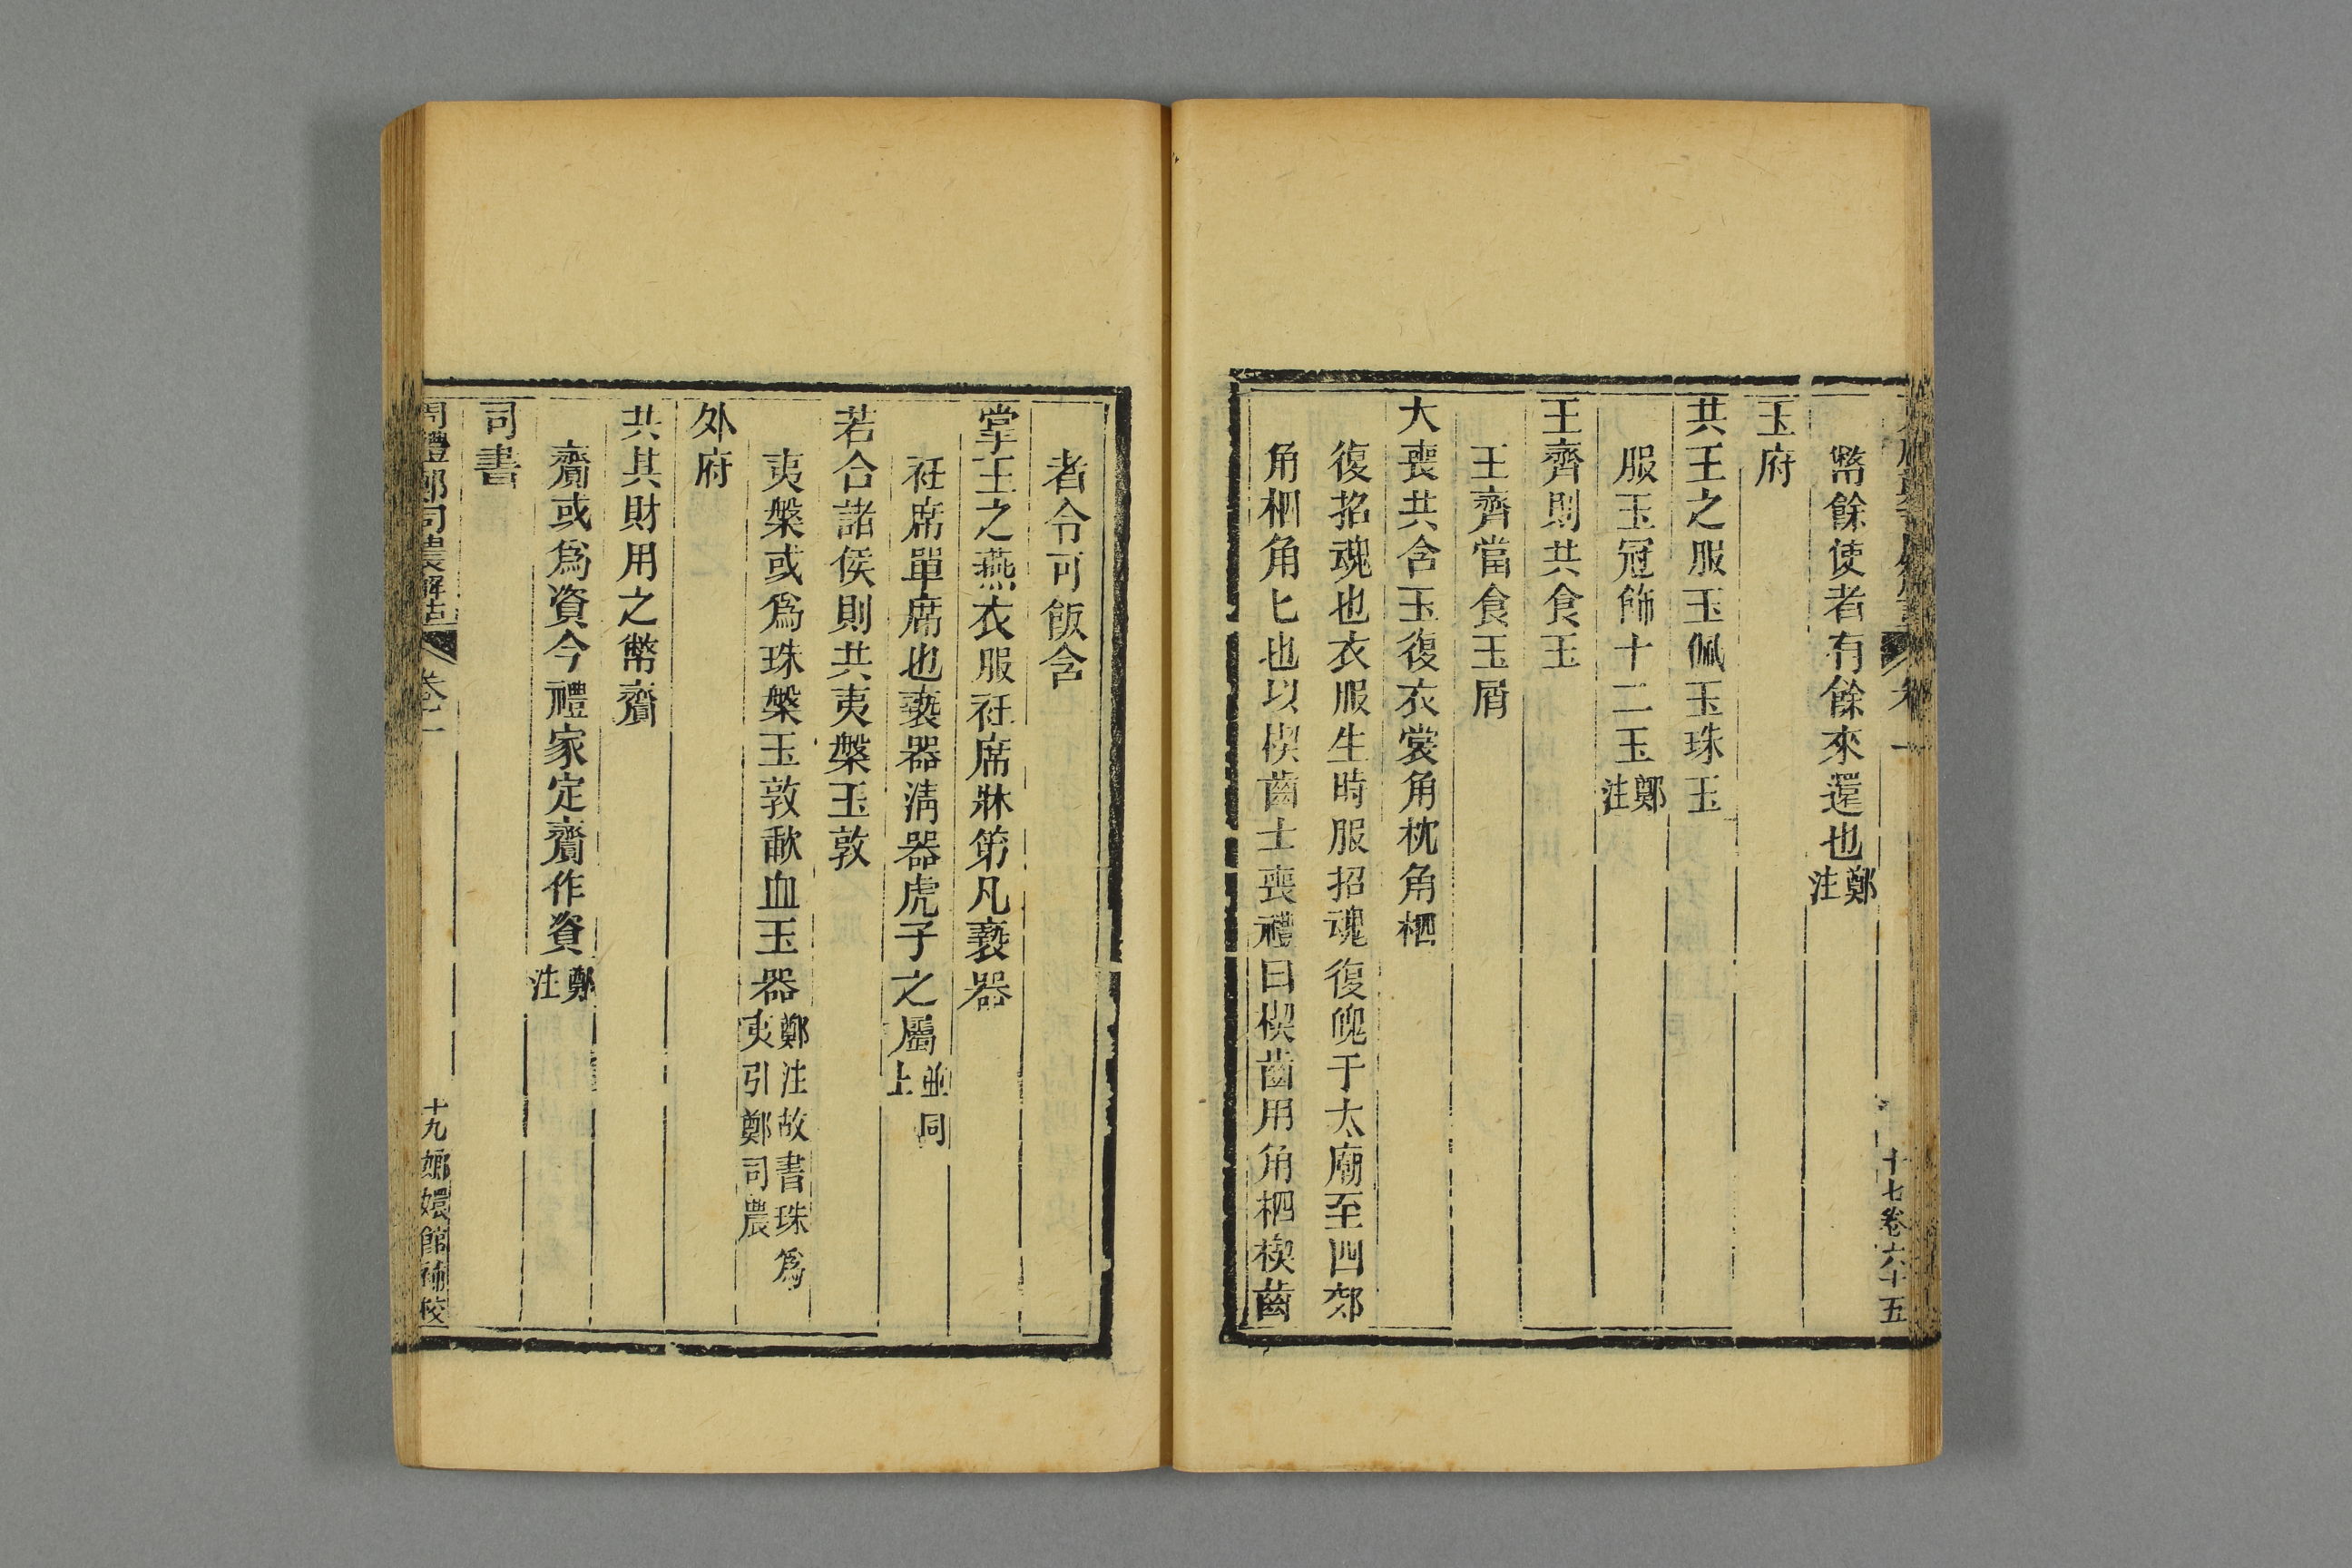 幣餘使者有餘來還也鄭注
玉府
共王之服玉佩玉珠玉
服玉冠飾十二玉鄭注
王齊則共食玉
王齊當食玉屑
大喪共含玉復衣裳角枕角柶
復招魂也衣服生時服招魂復魄于太廟至四郊
角柶角匕也以楔齒士喪禮曰楔齒用角柶楔齒
十七卷六十五
者令可飯含
掌王之燕衣服衽席牀笫凡褻器
衽席單席也褻器清器虎子之屬並同上
若合諸侯則共夷槃玉敦
夷槃或爲珠槃玉敦歃血玉器鄭注故書珠爲夷引鄭司農
外府
共其財用之幣齎
齎或爲資今禮家定齎作資鄭注
司書
周禮鄭司農解詁 卷一
十九 嫏嬛館補校